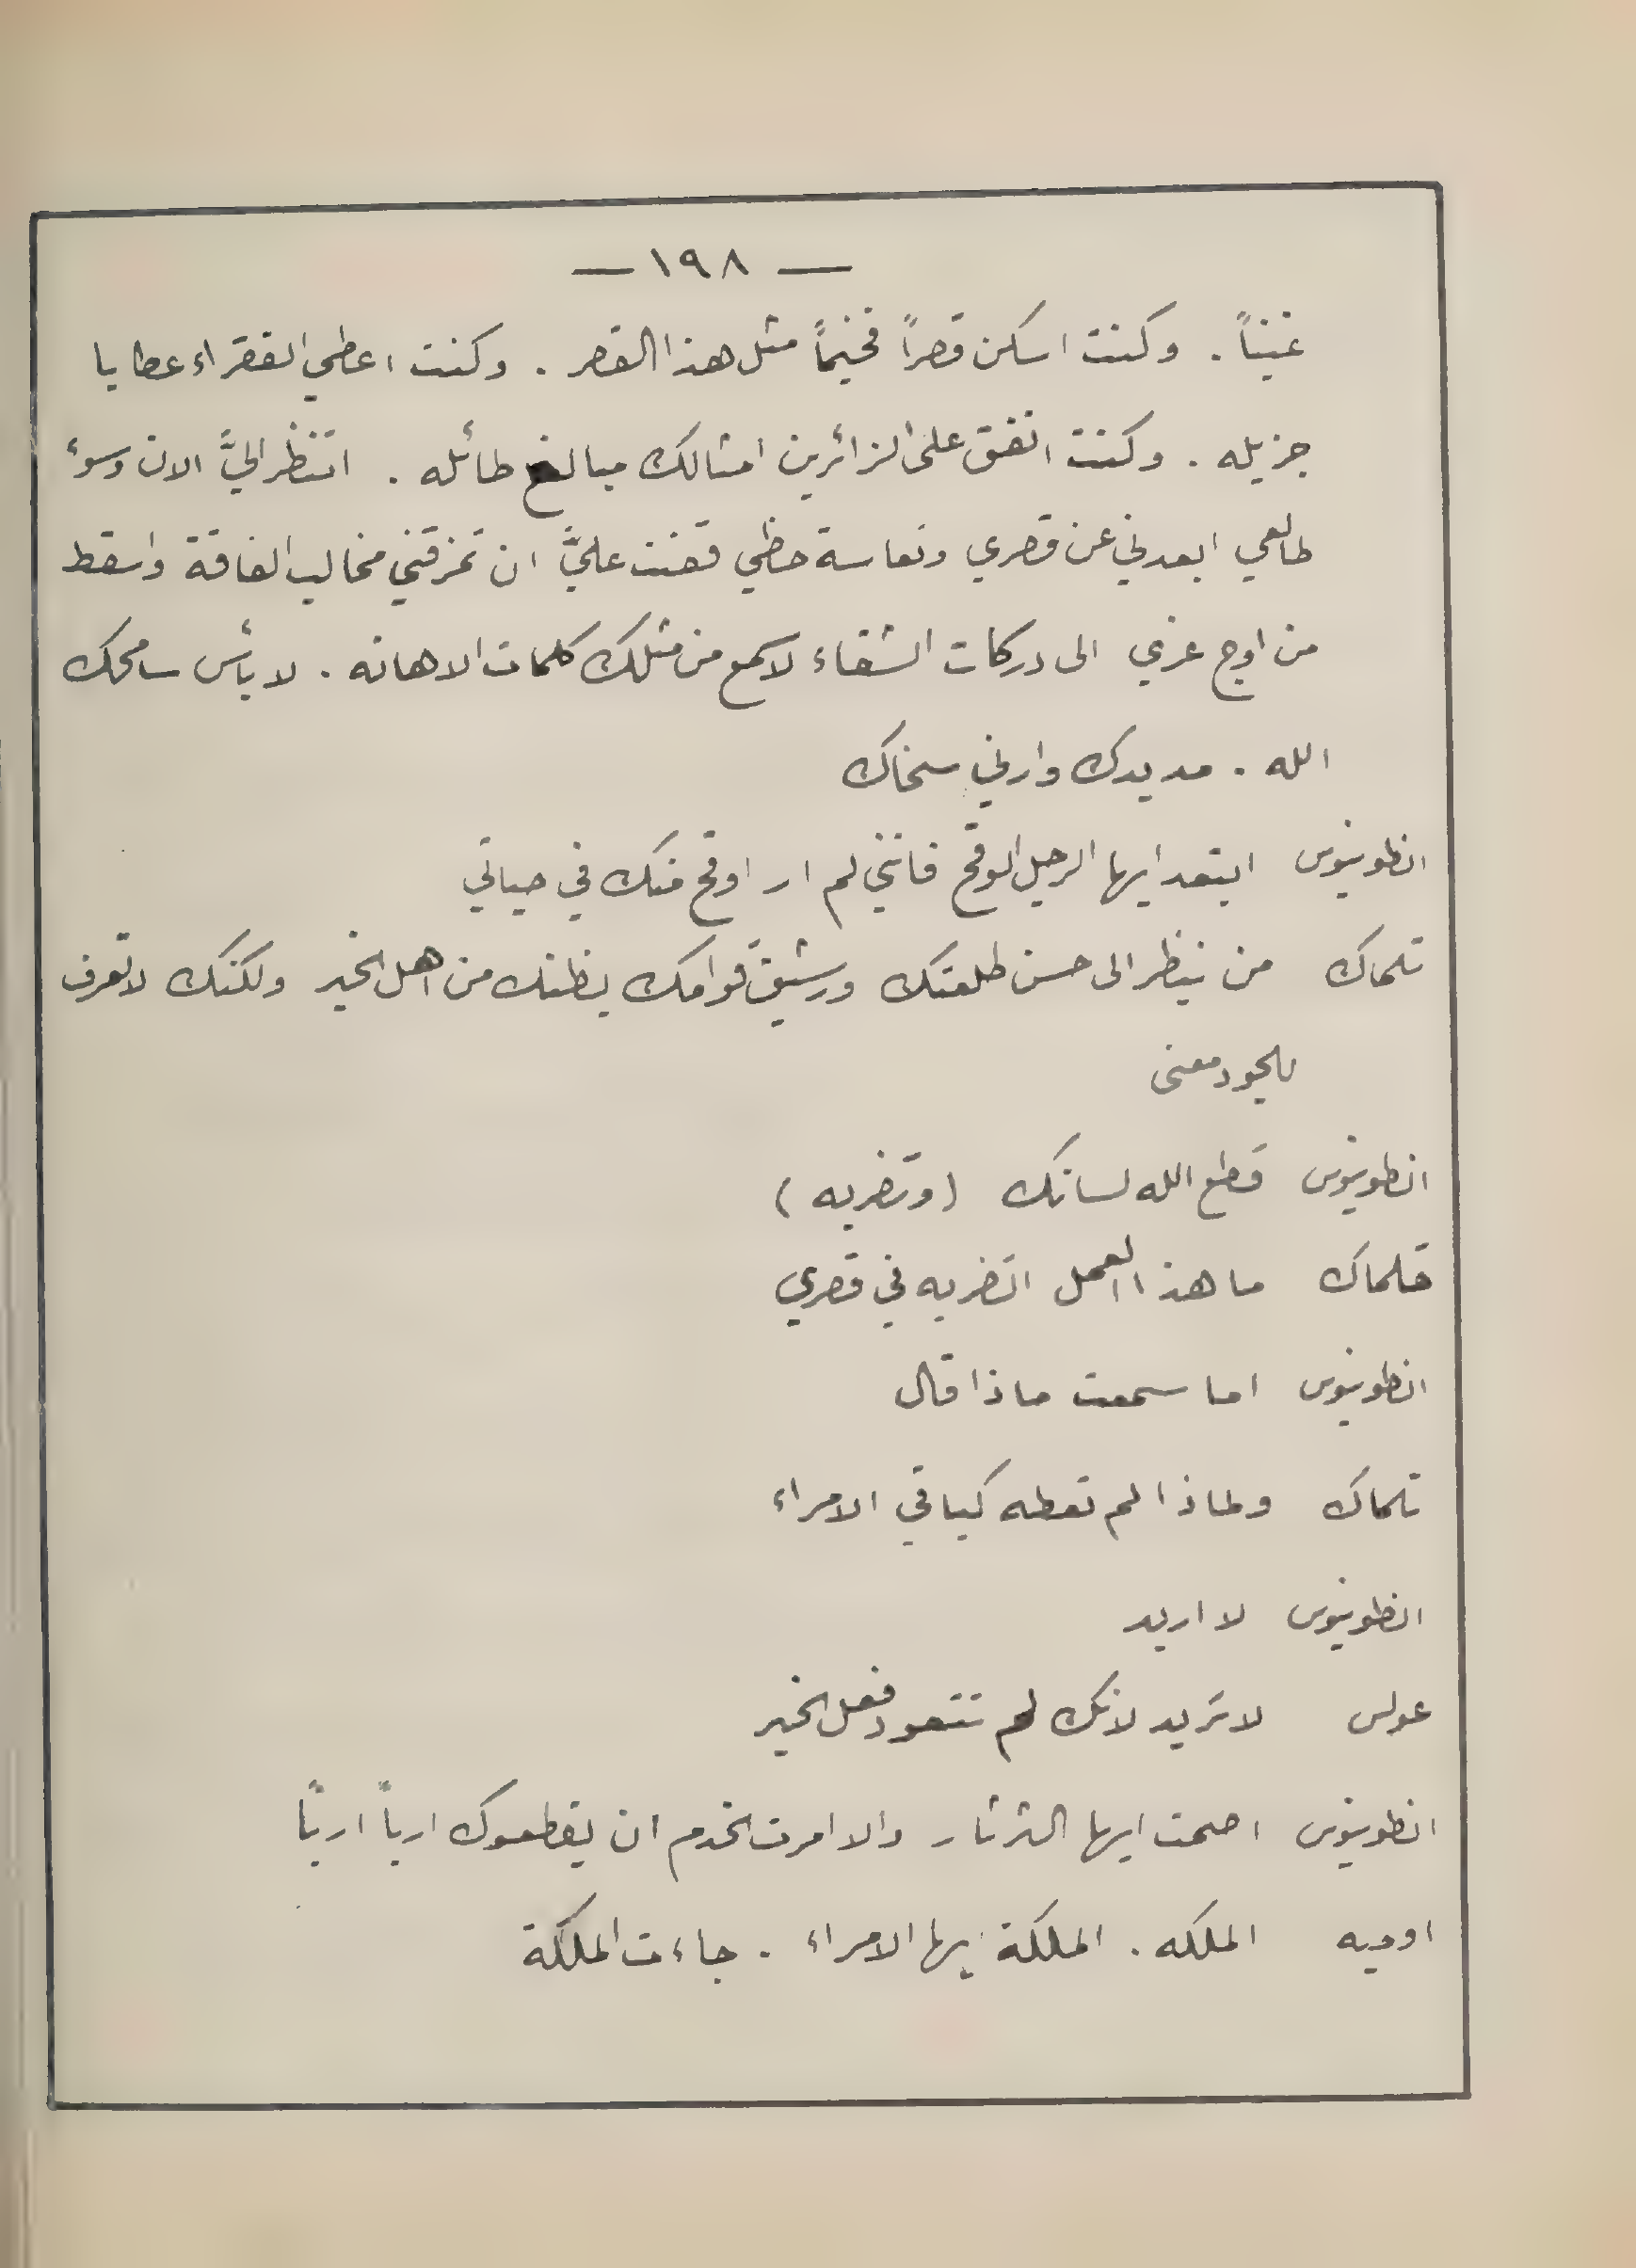 — ١٩٨ —
غنياً . وكنت اسكن قصراً فخيماً مثل هذا القصر . وكنت اعطي الفقراء عطايا
جزيله . وكنت انفق على الزائرين امثالك مبالغ طائله . انتظر اليَّ الان وسوء
طالعي ابعدني عن قصري وتعاسة حظي قضت عليَّ ان تمزقني مخالب الفاقة واسقط
من اوج عزي الى دركات الشقاء لاسمع من مثلك كلمات الاهانه . لا بأس سامحك
الله . مد يدك وارني سخاك
انطونيوس ابتعد ايها الرجل الوقح فانني لم ار اوقح منك في حياتي
تلماك من ينظر الى حسن طلعتك ورشيق قوامك يظنك من اهل الخير ولكنك لا تعرف
للجود معنى
انطونيوس قطع الله لسانك (وتضربه)
تلماك ما هذا العمل اتضربه في قصري
انطونيوس اما سمعت ماذا قال
تلماك ولماذا لم تعطه كباقي الامراء
انطونيوس لا اريد
عولس لا تريد لانك لم تتعود فعل الخير
انطونيوس اصمت ايها الثرثار والا امرت الخدم ان يقطعوك ارباً ارباً
اوميه الملكه . الملكة ايها الامراء . جاءت الملكة